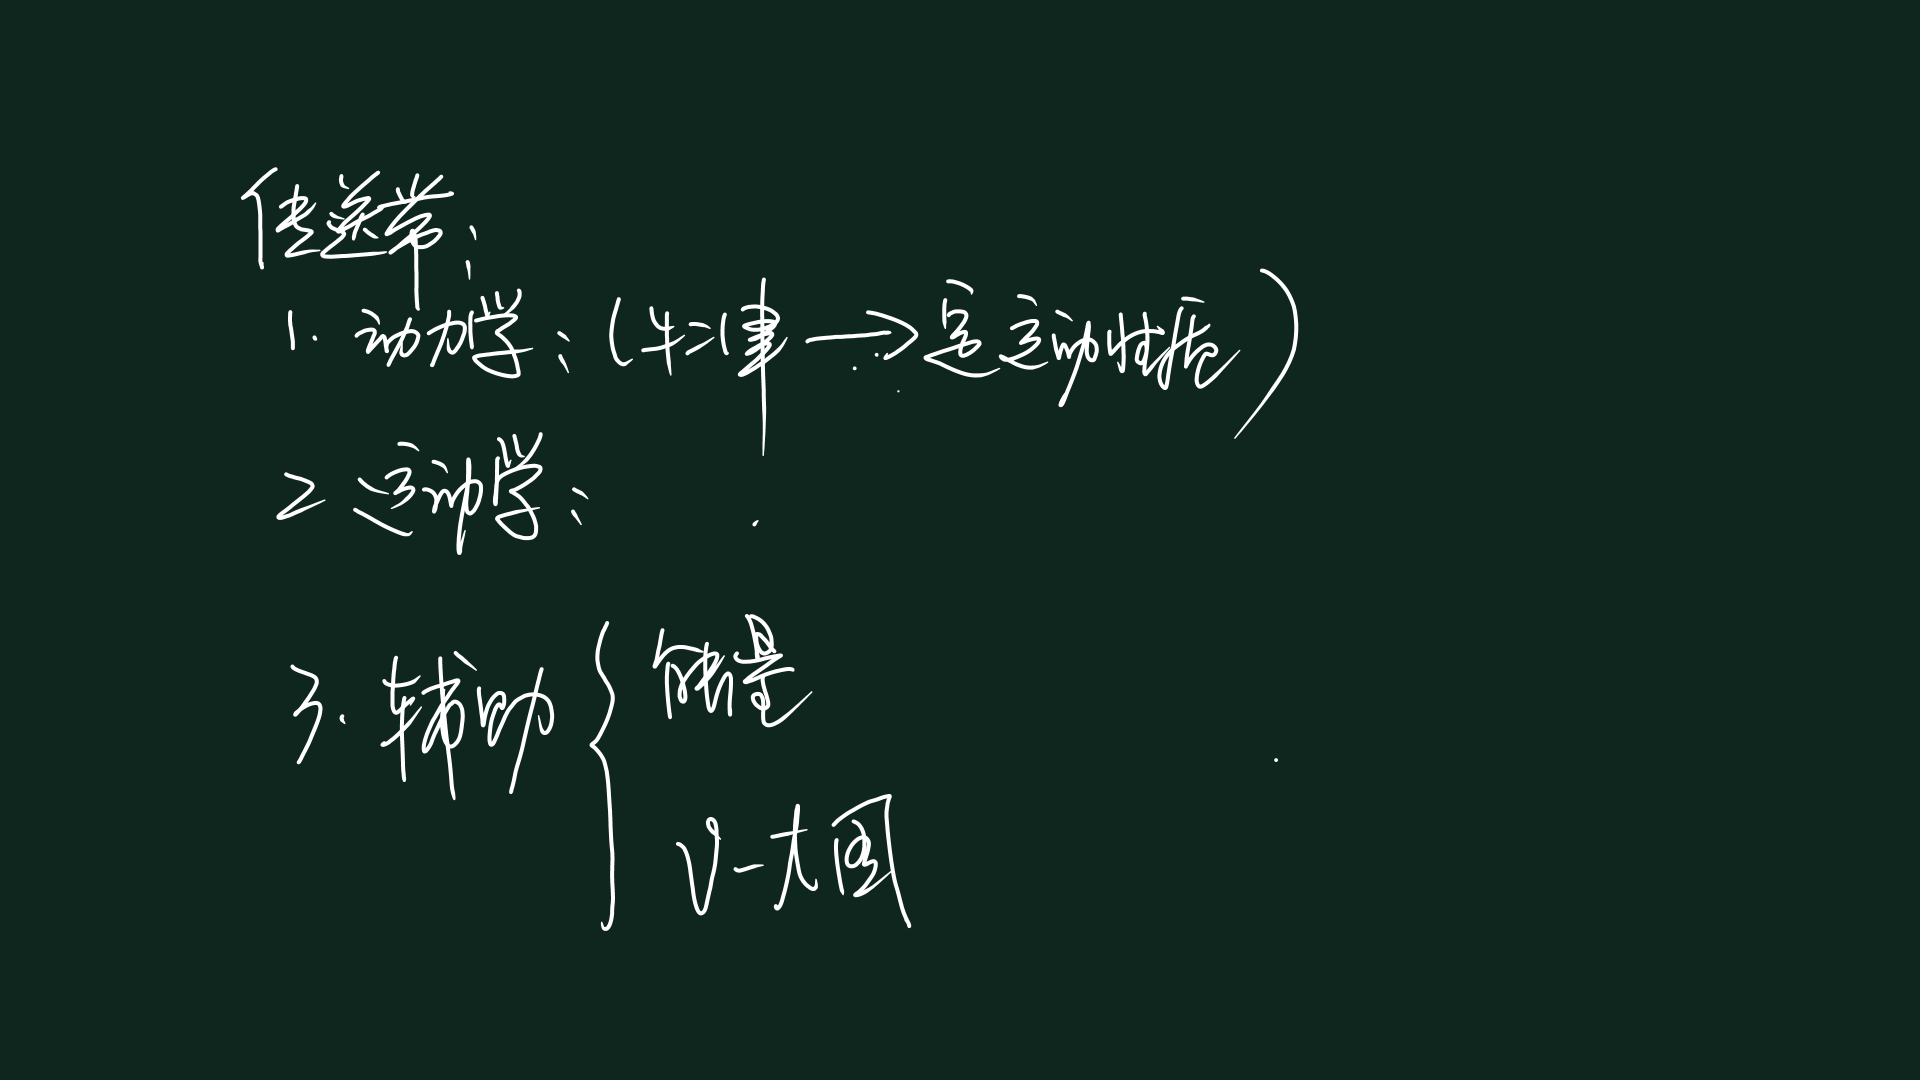 传送带：
1. 动力学：(牛二律→运动性质)
2 运动学：
3. 辅助{能量
v-t图